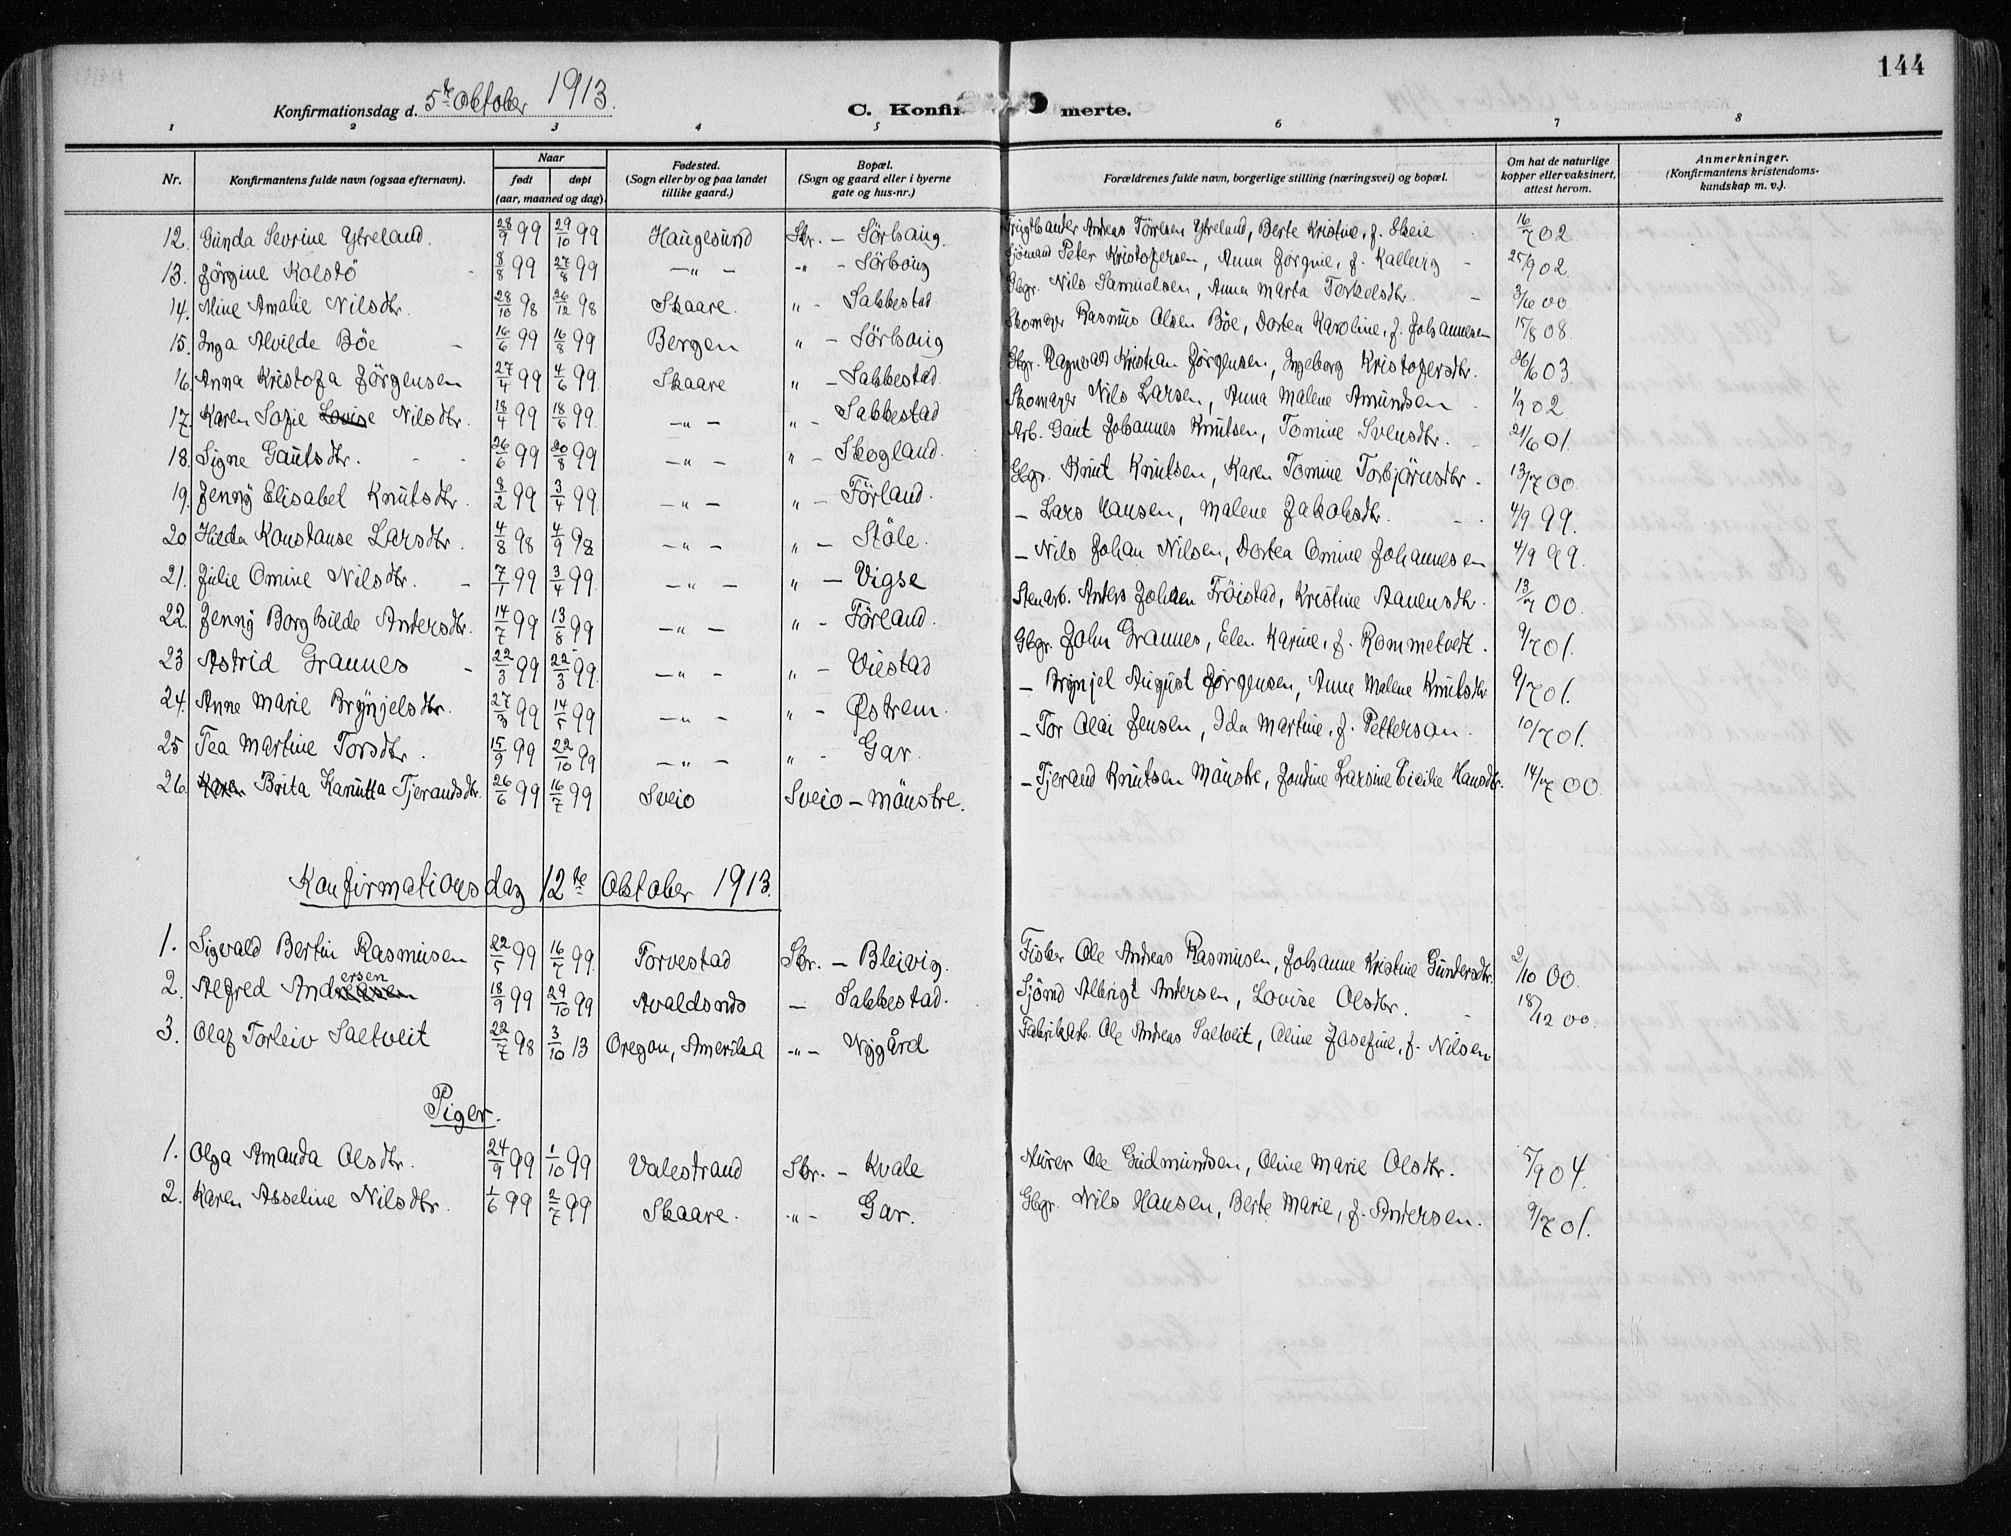 144
Konfirmationsdag d. 5te Oktober 1913.
C. Konfirmerte.
1 2 3 4 5 6 7 8
Nr. Konfirmantens fulde navn (ogsaa efternavn). Naar født døpt (aar, maaned og dag) Fødested. (Sogn eller by og paa landet tillike gaard.) Bopæl. (Sogn og gaard eller i byerne gate og hus-nr.) Forældrenes fulde navn, borgerlige stilling (næringsvei) og bopæl. Om hat de naturlige kopper eller vaksinert, attest herom. Anmerkninger. (Konfirmantens kristendomskundskap m. v.).
12. Gunda Sevrine Ytreland. 28/9 99 29/10 99 Haugesund Skr. - Sörhaug. Andreas Törresen Ytreland, Berte Kristine, f. Skeie 16/7 02
13. Jörgine Kolstö 8/8 99 27/8 99 -"- -"- Sörhaug Sjömand Peter Kristofersen, Anna Jörgine, f. Kallevig 25/9 02
14. Mine Amalie Nilsdtr. 28/10 98 26/12 98 Skaare. " - Sakkestad Gbgr. Nils Samuelsen, Anna Marta Torkelsdtr. 3/6 00
15. Inga Alvilde Böe 16/6 99 16/8 99 Bergen " - Sörhaug Skomager Rasmus Olsen Böe, Dortea Karoline, f. Johannesen 15/8 08.
16. Anna Kristofa Jörgensen 27/4 99 4/6 99. Skaare " - Sakkestad. Gbgr. Ragnvald Kristian Jörgensen, Ingeborg Kristofersdtr. 26/6 03.
17. Karen Sofie Louise Nilsdtr. 18/4 99 18/6 99. -"- "- Sakkestad Skomager Nils Larsen, Anna Malene Amundsen 1/9 02
18. Signe Gautsdtr. 26/6 99 20/8 99 -"- " - Skogland. Arb. Gaut Johannes Knutsen, Tomine Svensdtr. 21/6 01.
19. Jenny Elisabet Knutsdtr. 8/2 99 3/4 99. -"- " - Förland. Gbgr. Knut Knutsen, Karen Tomine Torbjörnsdtr. 13/7 00
20 Hilda Konstanse Larsdtr. 4/8 98 4/9 98 -"- " - Ståle. - Lars Hansen, Malene Jakobsdtr. 4/9 99.
21. Julie Omine Nilsdtr. 7/1 99 3/4 99 -"- " - Vigse - Nils Johan Nilsen, Dortea Omine Johannesen 4/9 99.
22. Jenny Borghilde Andersdtr. 14/7 99 13/8 99 -"- " - Förland. Stenarb. Anders Johsen Fröistad, Kristine Aanensdtr. 13/7 00.
23 Astrid Grannes 22/3 99 22/3 99. -"- " - Viestad Gbgr. John Grannes, Elen Karine, f. Rommetvedt. 9/7 01.
24. Anne Marie Brynjelsdtr. 27/3 99 14/5 99 -"- " - Østrem. - Brynjel August Jörgensen, Anne Malene Knutsdtr. 9/7 01.
25 Tea Martine Torsdtr. 15/9 99 22/10 99 -"- " - Gar. - Tor Olai Jensen, Ida Martine, f. Pettersen. 10/7 01.
26. Brita Kanutta Tjerandsdtr. 26/6 99 16/7 99 Sveio Sveio - Mönstre. - Tjerand Knutsen Mönstre, Larsine Hansdtr. 14/7 00
Konfirmationsdag 12te Oktober 1913.
1. Sigvald Bertin Rasmusen 22/5 99 16/7 99. Torvestad Skr. - Bleivig. Fisker Ole Andreas Rasmusen, Johanne Kristine Gundersdtr. 2/10 00.
2. Alfred Andersen 18/9 99 29/10 99 Avaldsnes - Sakkestad. Sjömd Albrigt Andersen, Lovise Olsdtr. 18/12 00.
3. Olaf Torleiv Saltveit 22/7 98 3/10 13 Oregon, Amerika -"- Nygård Fabrikarb. Ole Andreas Saltveit, Oline Josefine, f. Nilsen
Piger.
1. Olga Amanda Olsdtr. 24/9 99 1/10 99 Valestrand Skr. - Kvale Murer Ole Gudmundsen, Oline Marie Olsdtr. 5/9 04.
2. Karen Asseline Nilsdtr. 1/6 99 2/7 99 Skaare. "- Gar. Gbgr. Nils Hansen, Berte Marie, f. Andersen. 9/7 01.